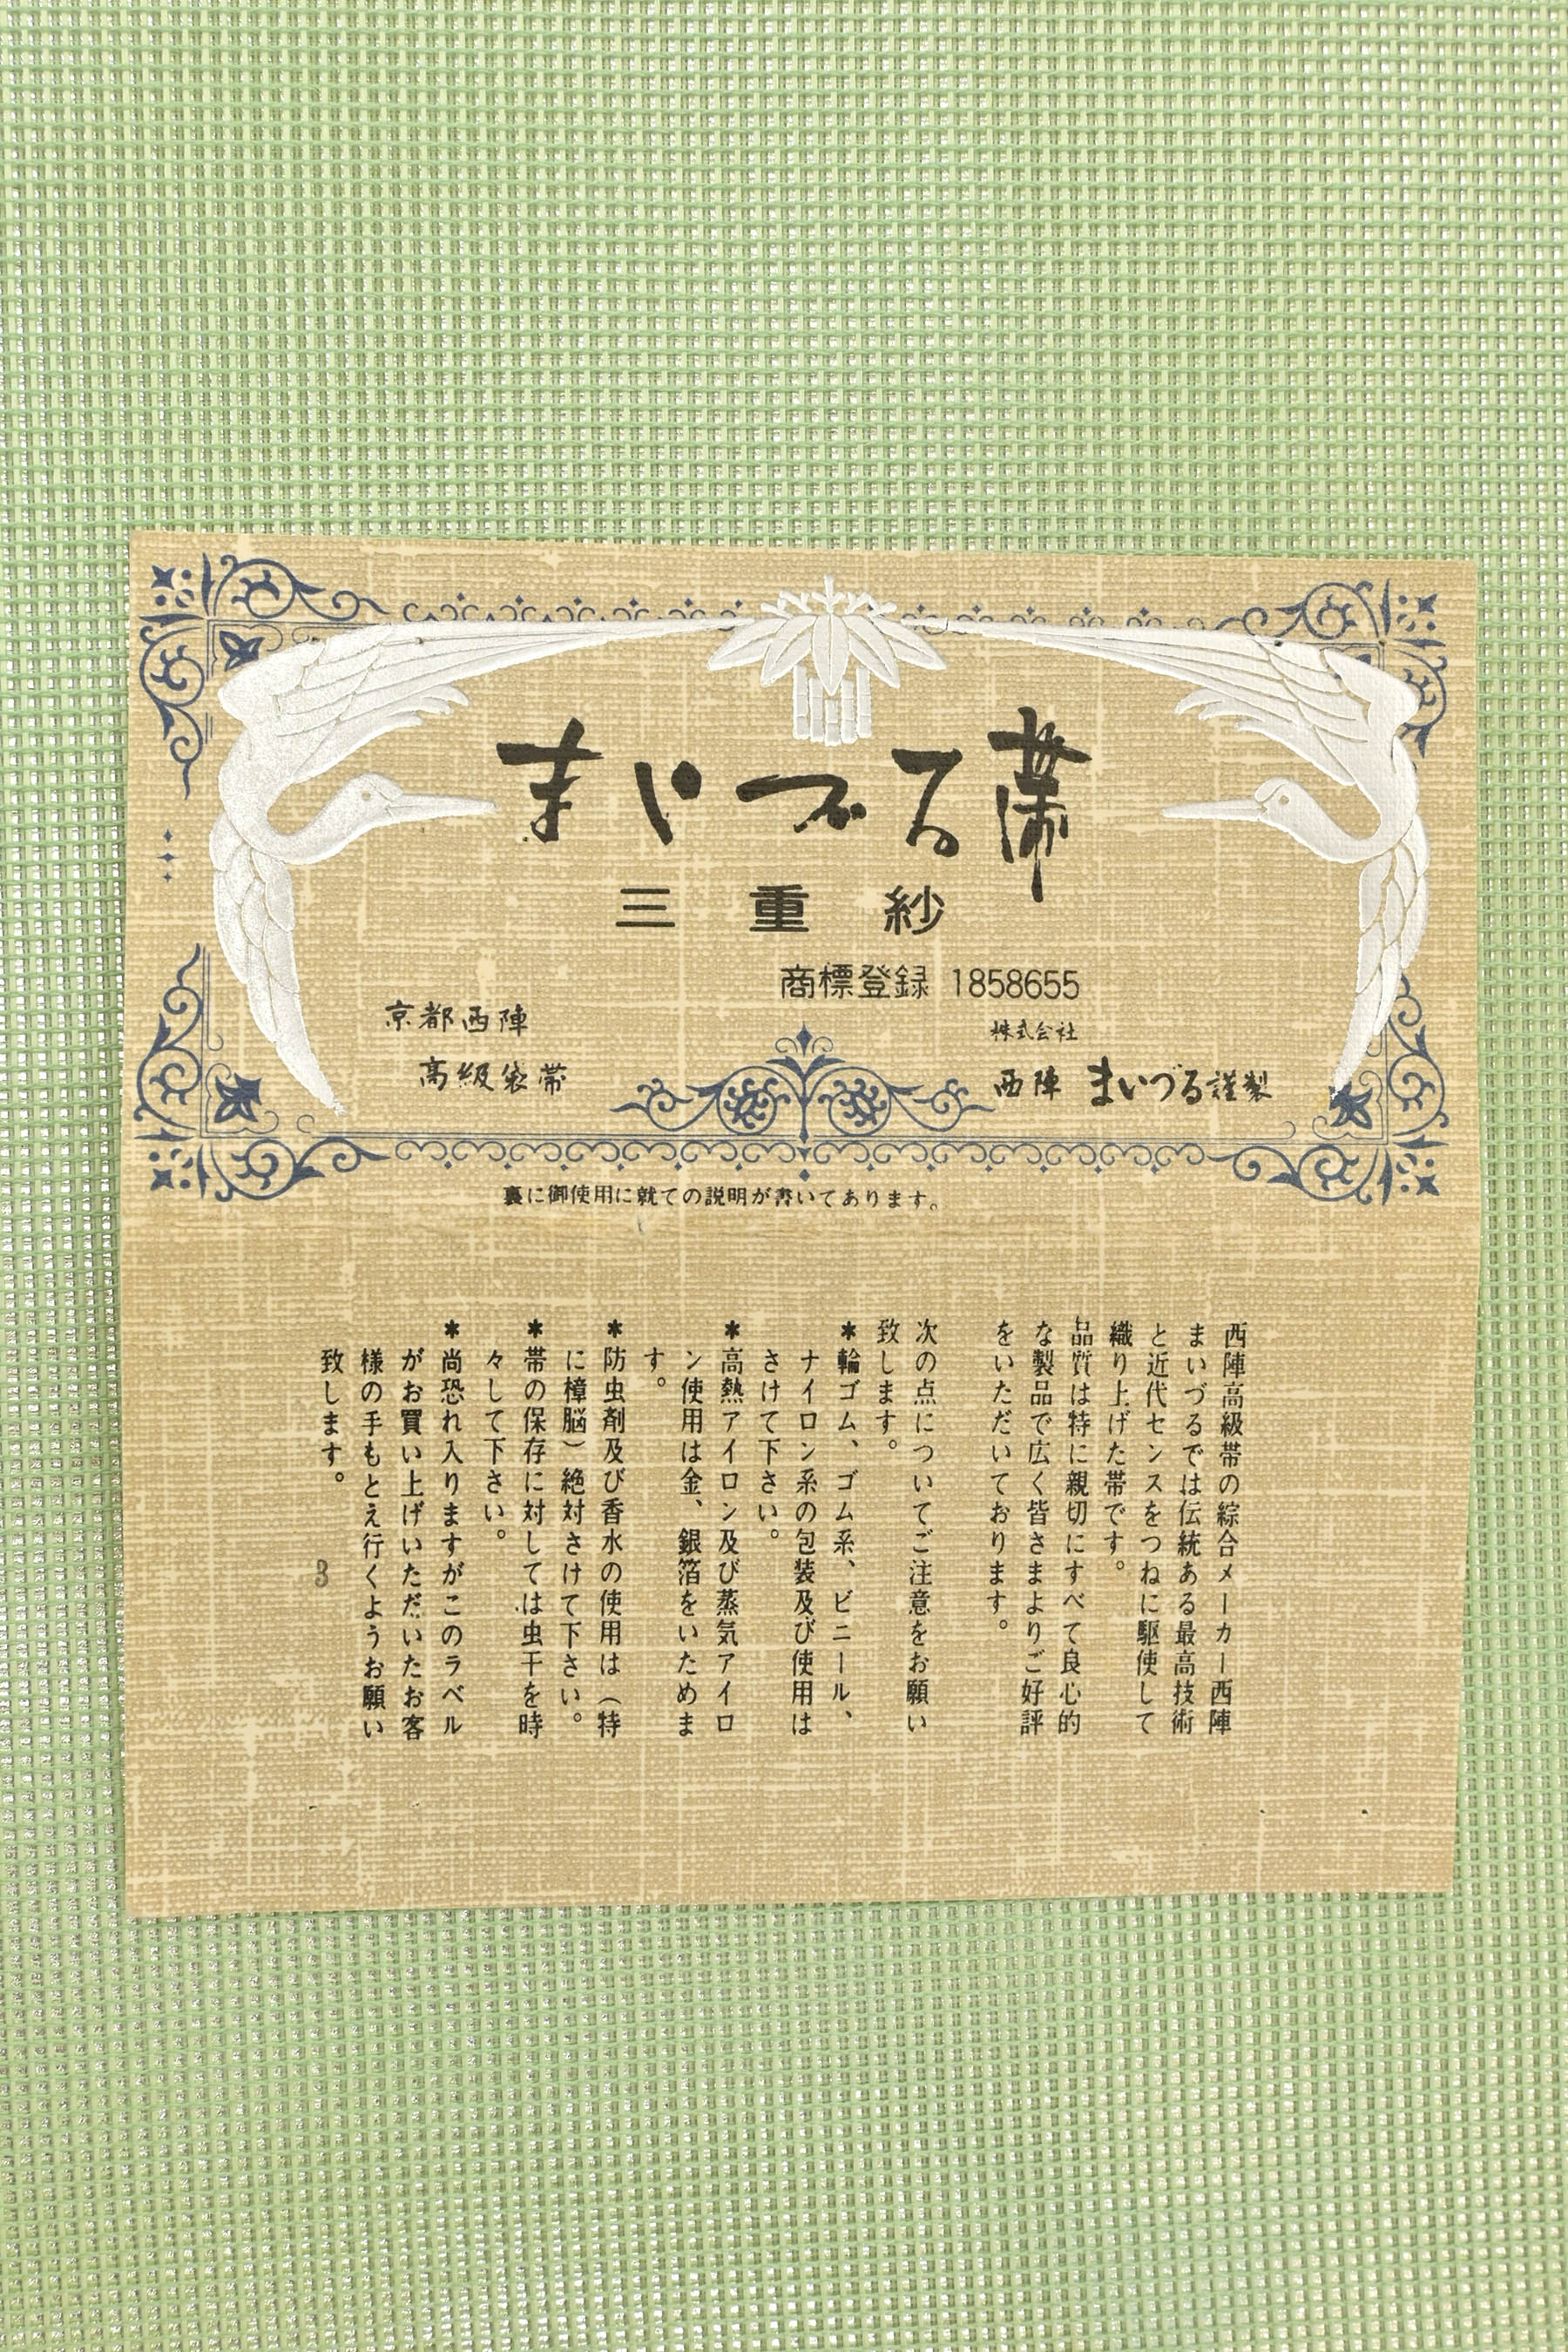 まいづる帯
三重紗
商標登録 1858655
京都西陣
高級袋帯
株式会社
西陣 まいづる謹製
裏に御使用に就ての説明が書いてあります。
西陣高級帯の綜合メーカー西陣
まいづるでは伝統ある最高技術
と近代センスをつねに駆使して
織り上げた帯です。
品質は特に親切にすべて良心的
な製品で広く皆さまよりご好評
をいただいております。
次の点についてご注意をお願い
致します。
＊輪ゴム、ゴム系、ビニール、
ナイロン系の包装及び使用は
さけて下さい。
＊高熱アイロン及び蒸気アイロ
ン使用は金、銀箔をいためま
す。
＊防虫剤及び香水の使用は（特
に樟脳）絶対さけて下さい。
＊帯の保存に対しては虫干を時
々して下さい。
＊尚恐れ入りますがこのラベル
がお買い上げいただいたお客
様の手もとえ行くようお願い
致します。
3